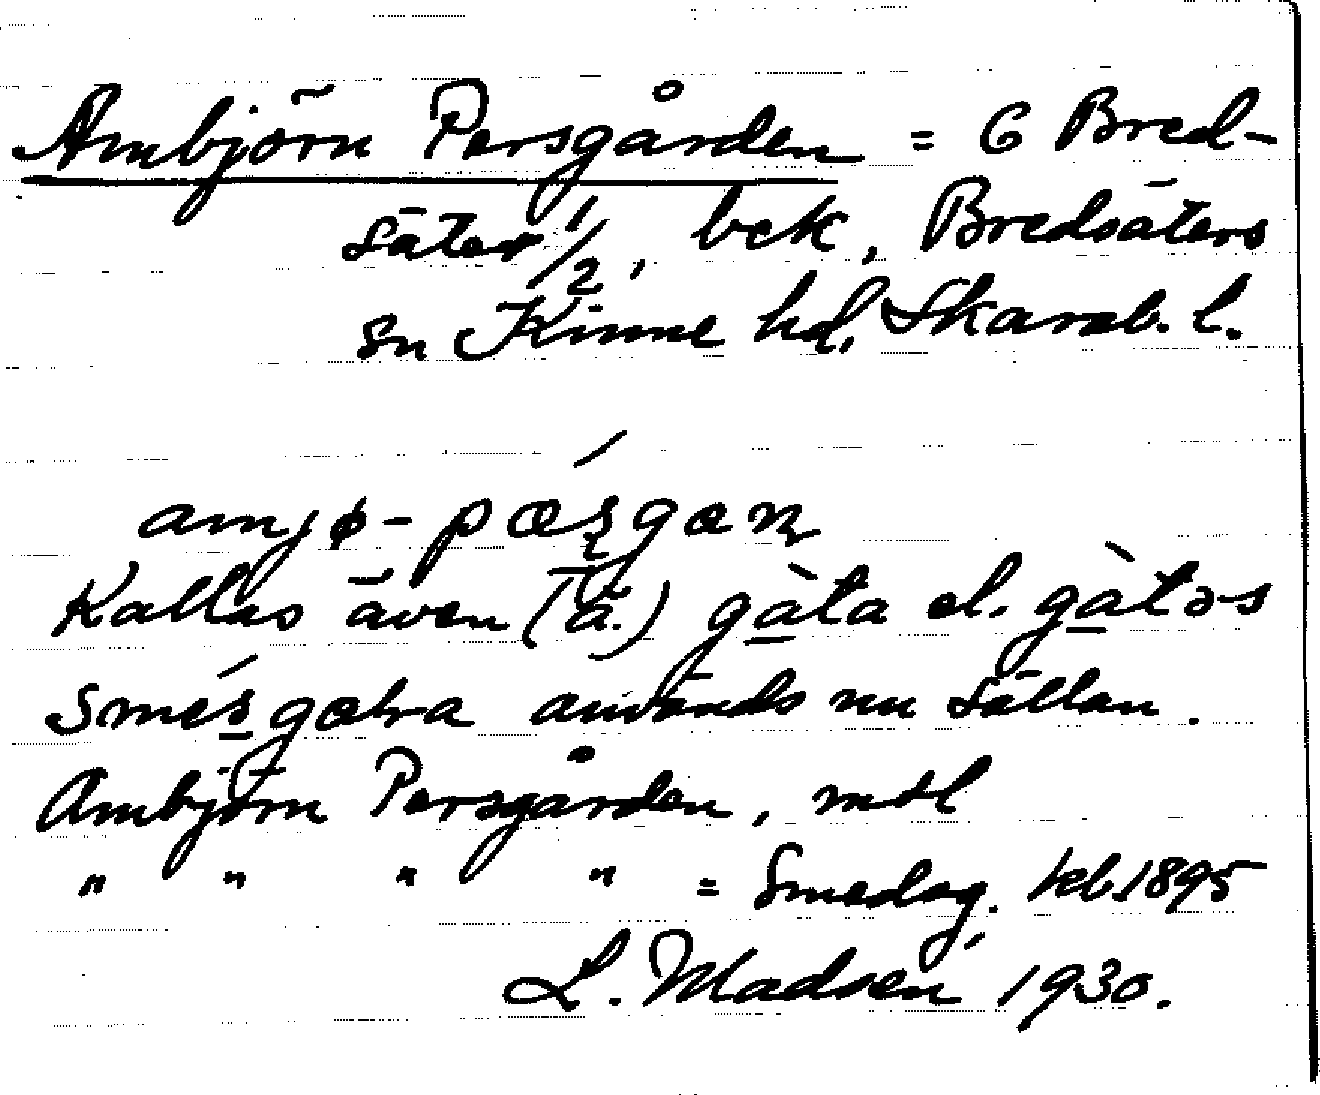 Ambjörn Persgården = 6 Bred-
säter 1/2, bek, Bredsäters
sn Kinne hd, Skarab. l.
amjɸ-pæʂgæɳ
Kallas även (ä.) gàta el. gàtəs
smésgæɫʌa används nu sällan.
Ambjörn Persgården, mtl
" " " " = Smedsg. kb. 1895
L. Madsén 1930.